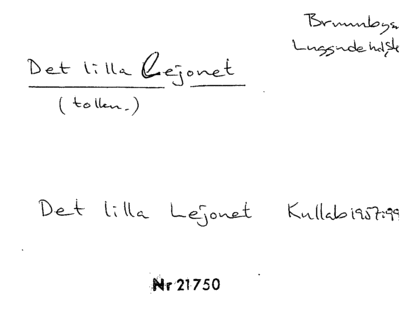 Brunnby s
Luggude hd, Sk
Det lilla Lejonet
(tollen.)
Det lilla Lejonet Kullab 1957:99
Nr 21750